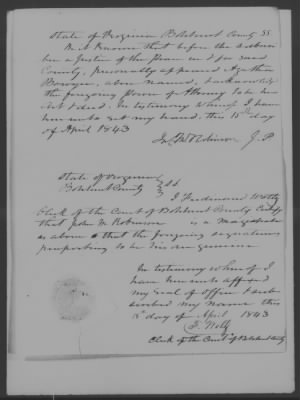 State of Virginia Botetourt County SS
Be it Known that before the subscri
ber a Justice of the Peace in & for said
County, personally appeared Agatha
above named, & acknowledged
the foregoing Power of Attorney to be her
Act & deed. In testimony whereof I have
hereunto set my hand, this 15th day
of April 1843
Jno M Robinson J. P.
State of Virginia
Botetourt County } SS.
I Ferdinand Woltz
Clerk of the Court of Botetourt County Certify
that John M. Robinson is a Magistrate
as above & that the foregoing signature
purporting to be his are genuine
In testimony whereof I
have hereunto affixed
my seal of Office & sub
scribed my name this
15 day of April 1843
F. Woltz
Clerk of the Court of Botetourt Cnty